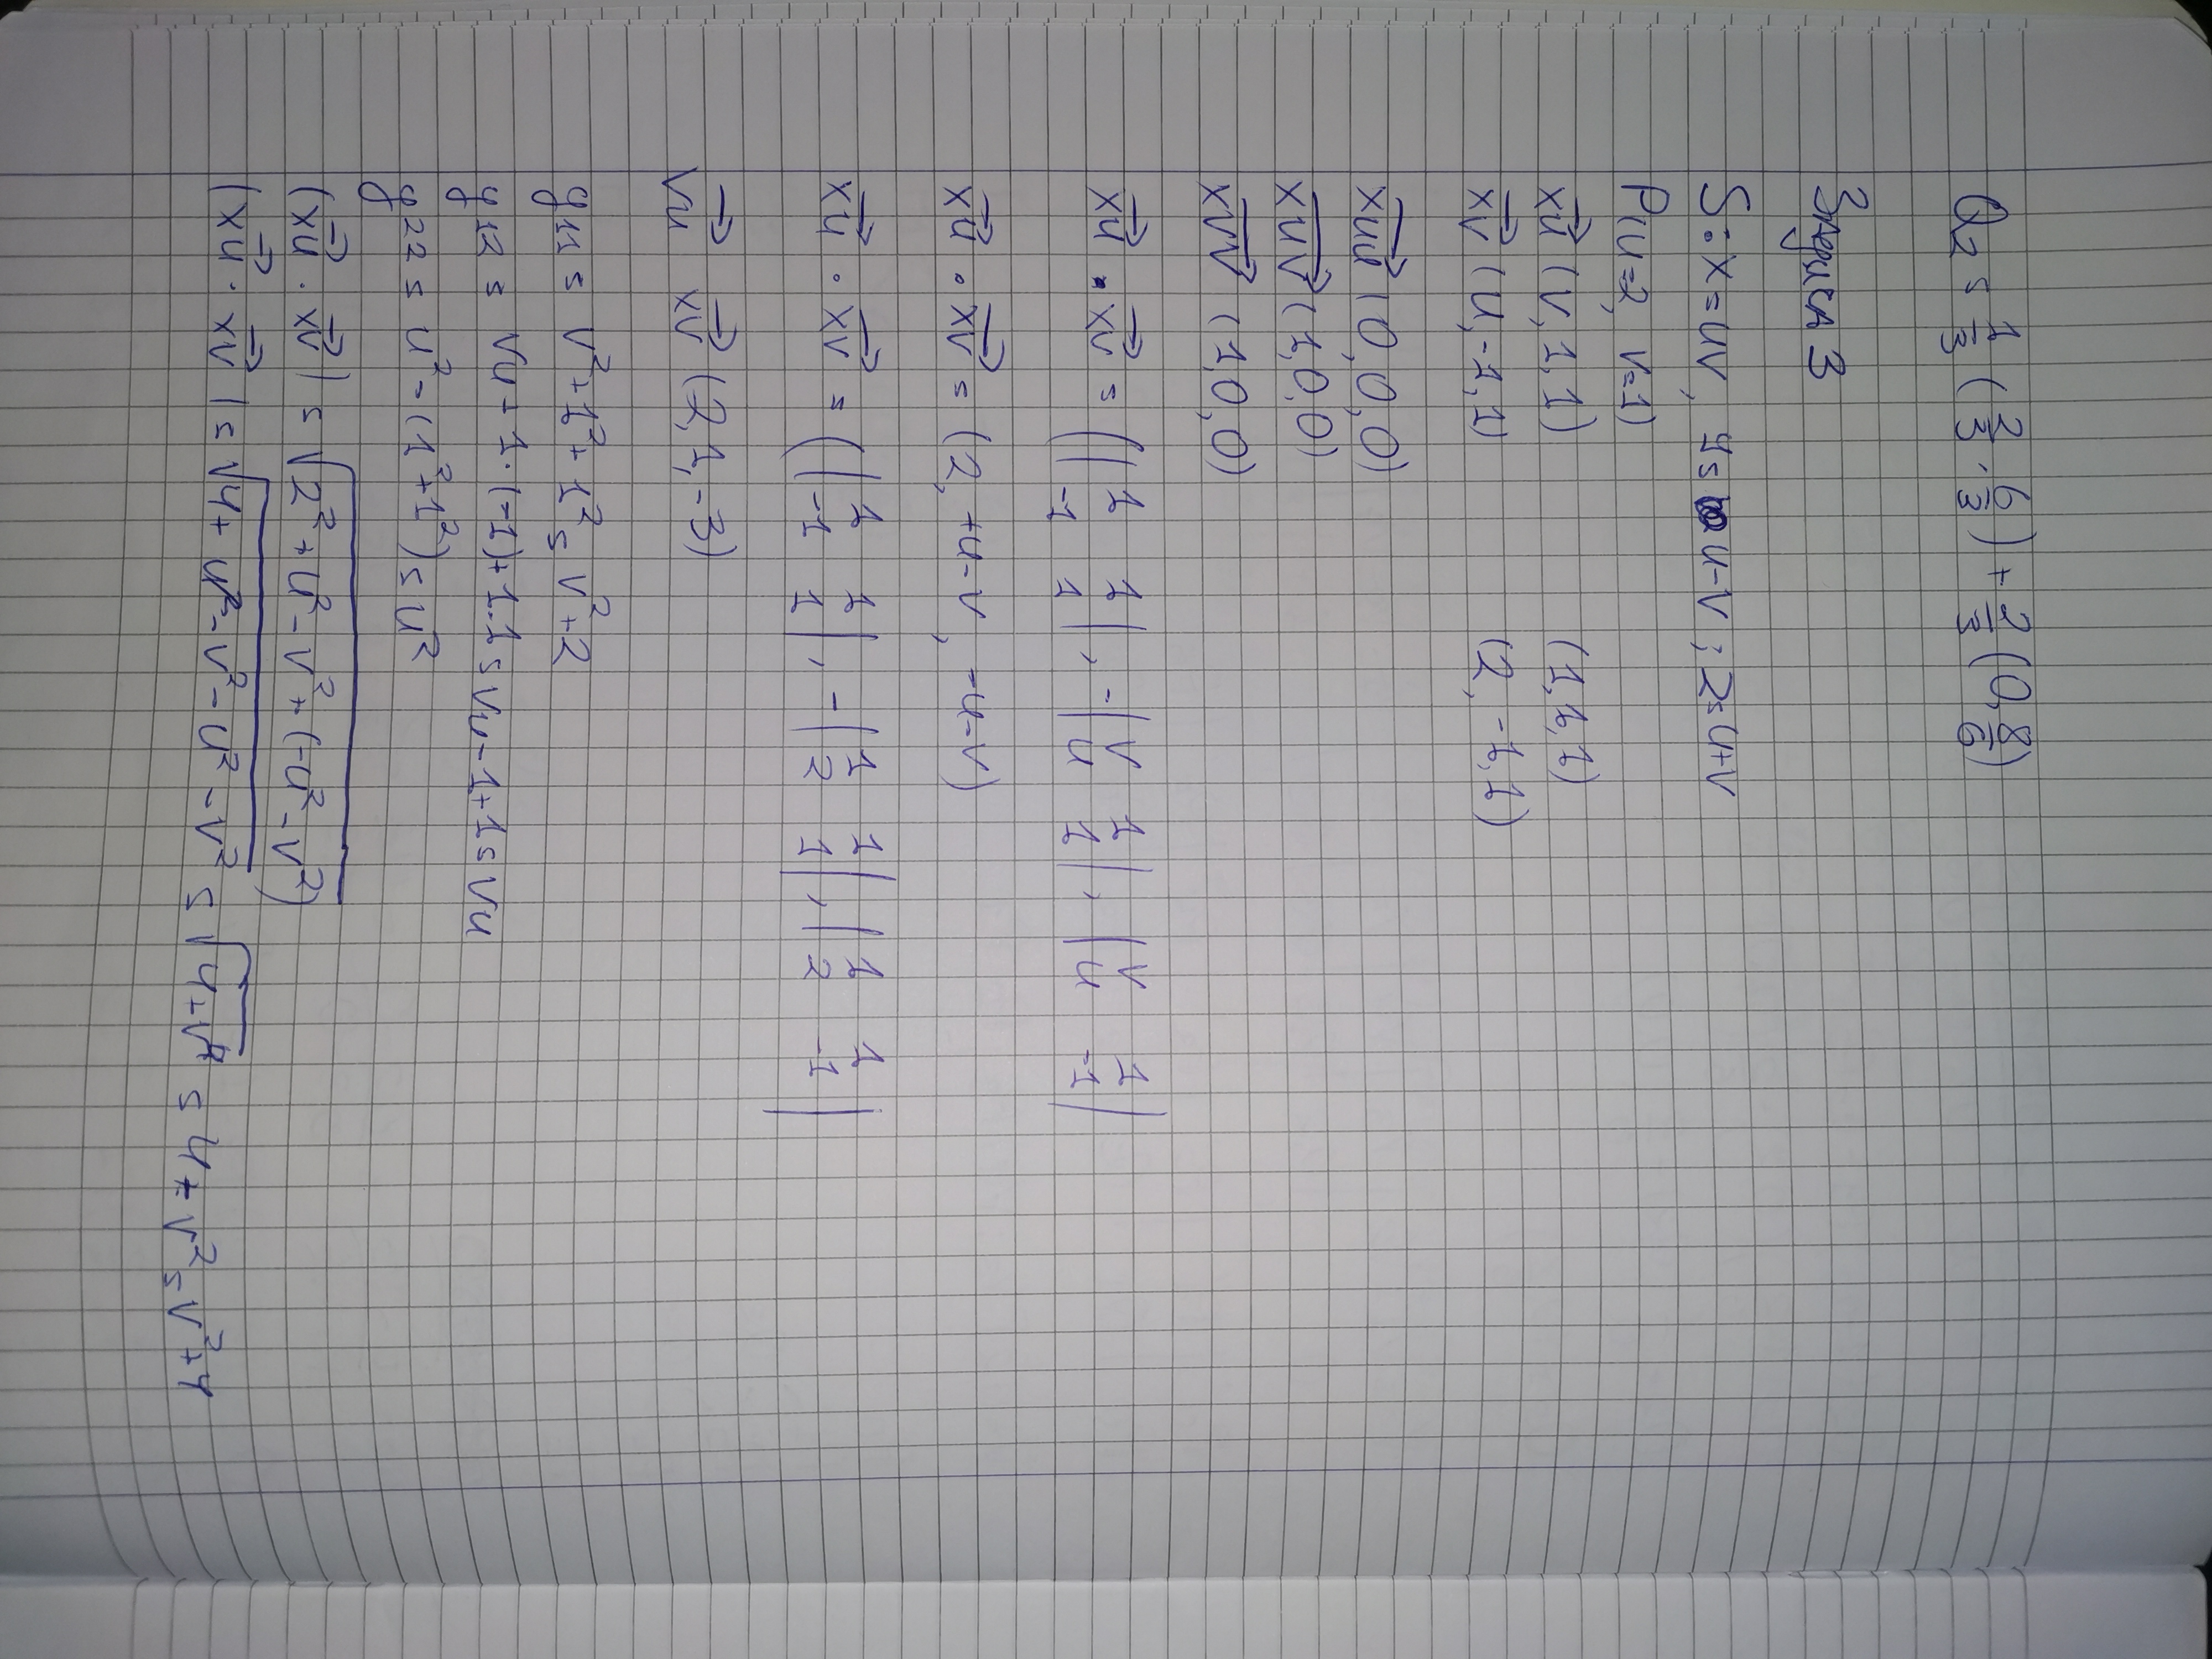 Q2 = 1/3 (2/3, 6/3) + 2/3 (0, 8/6)
Задача 3
S: x = uv, y = u-v ; z = u+v
P(u=2, v=1)
→xu (v, 1, 1) (1, 1, 1)
→xv (u, -1, 1) (2, -1, 1)
→xuu (0, 0, 0)
→xuv (1, 0, 0)
→xvv (1, 0, 0)
→xu · →xv = (|1 1; -1 1|, -|v 1; u 1|, |v 1; u -1|
→xu · →xv = (2, +u-v, -u-v)
→xu · →xv = (|1 1; -1 1|, -|1 1; 2 1|, |1 1; 2 -1|
→vu →xv (2, 1, -3)
g11 = v²+1²+1² = v²+2
g12 = vu + 1·(-1)+1·1 = vu-1+1 = vu
g22 = u² - (1²+1²) = u²
(→xu · →xv) = √(2² + u² - v² + (-u² - v²)
|→xu · →xv| = √(4 + u² - v² - u² - v²) = √(4+v⁴) = 4 + v² = v²+4